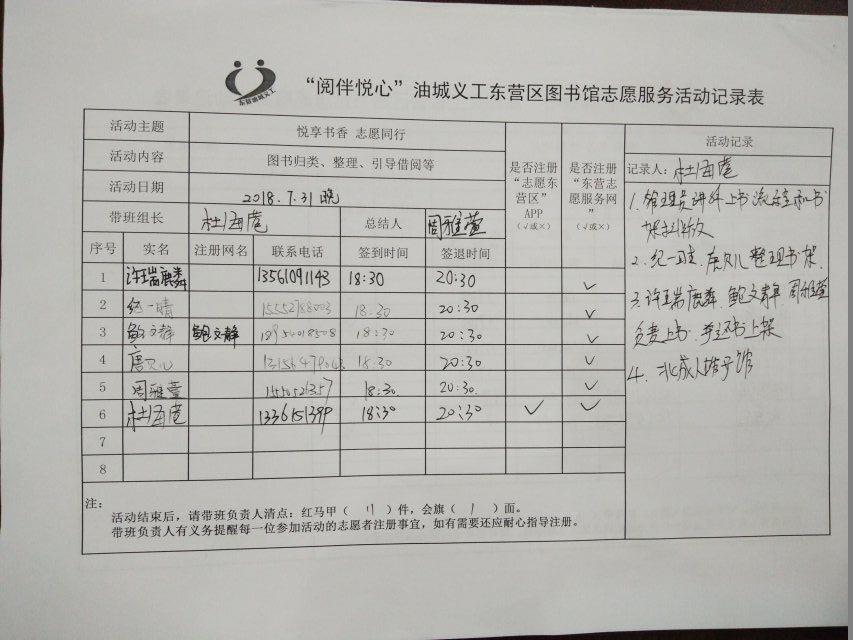 东营油城义工
“阅伴悦心”油城义工东营区图书馆志愿服务活动记录表
活动主题 悦享书香 志愿同行
活动内容 图书归类、整理、引导借阅等
活动日期 2018.7.31 晚
带班组长 杜海庵 总结人 周雅萱
是否注册“志愿东营区”APP（√或×）
是否注册“东营志愿服务网”（√或×）
序号 实名 注册网名 联系电话 签到时间 签退时间
1 许瑞麟 13561091143 18:30 20:30 ✓
2 纪一晴 15552788003 18:30 20:30 ✓
3 鲍文静 鲍文静 18:30 20:30 ✓
4 18:30 20:30 ✓
5 周雅萱 18:30 20:30 ✓
6 杜海庵 18:30 20:30 ✓ ✓
7
8
活动记录
记录人：杜海庵
1.管理员讲解上书流程和书
架排放
2.纪一晴 整理书架
3.许瑞麟、鲍文静、周雅萱
负责上书
4.
注：
活动结束后，请带班负责人清点：红马甲（11）件，会旗（1）面。
带班负责人有义务提醒每一位参加活动的志愿者注册事宜，如有需要还应耐心指导注册。